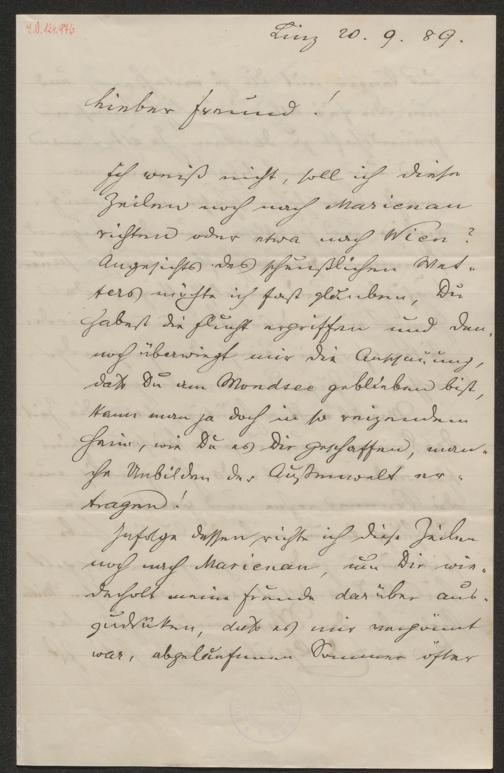 I.N. 124.976
Linz 20. 9. 89.
Lieber Freund!
Ich weiß nicht, soll ich diese
Zeilen noch nach Marienau
richten oder etwa nach Wien?
Angesichts des scheußlichen Wet-
ters möchte ich fast glauben, Du
habest die Flucht ergriffen und den-
noch überwiegt mir die Anschauung,
daß Du am Mondsee geblieben bist,
kann man ja doch in so reizendem
Heim, wie Du es Dir geschaffen, man-
che Unbilden der Außenwelt er-
tragen!
Zufolge dessen richte ich diese Zeilen
noch nach Marienau, um Dir wie-
derholt meine Freude darüber aus-
zudrüken, daß es mir vergönnt
war, abgelaufenen Sommer öfter